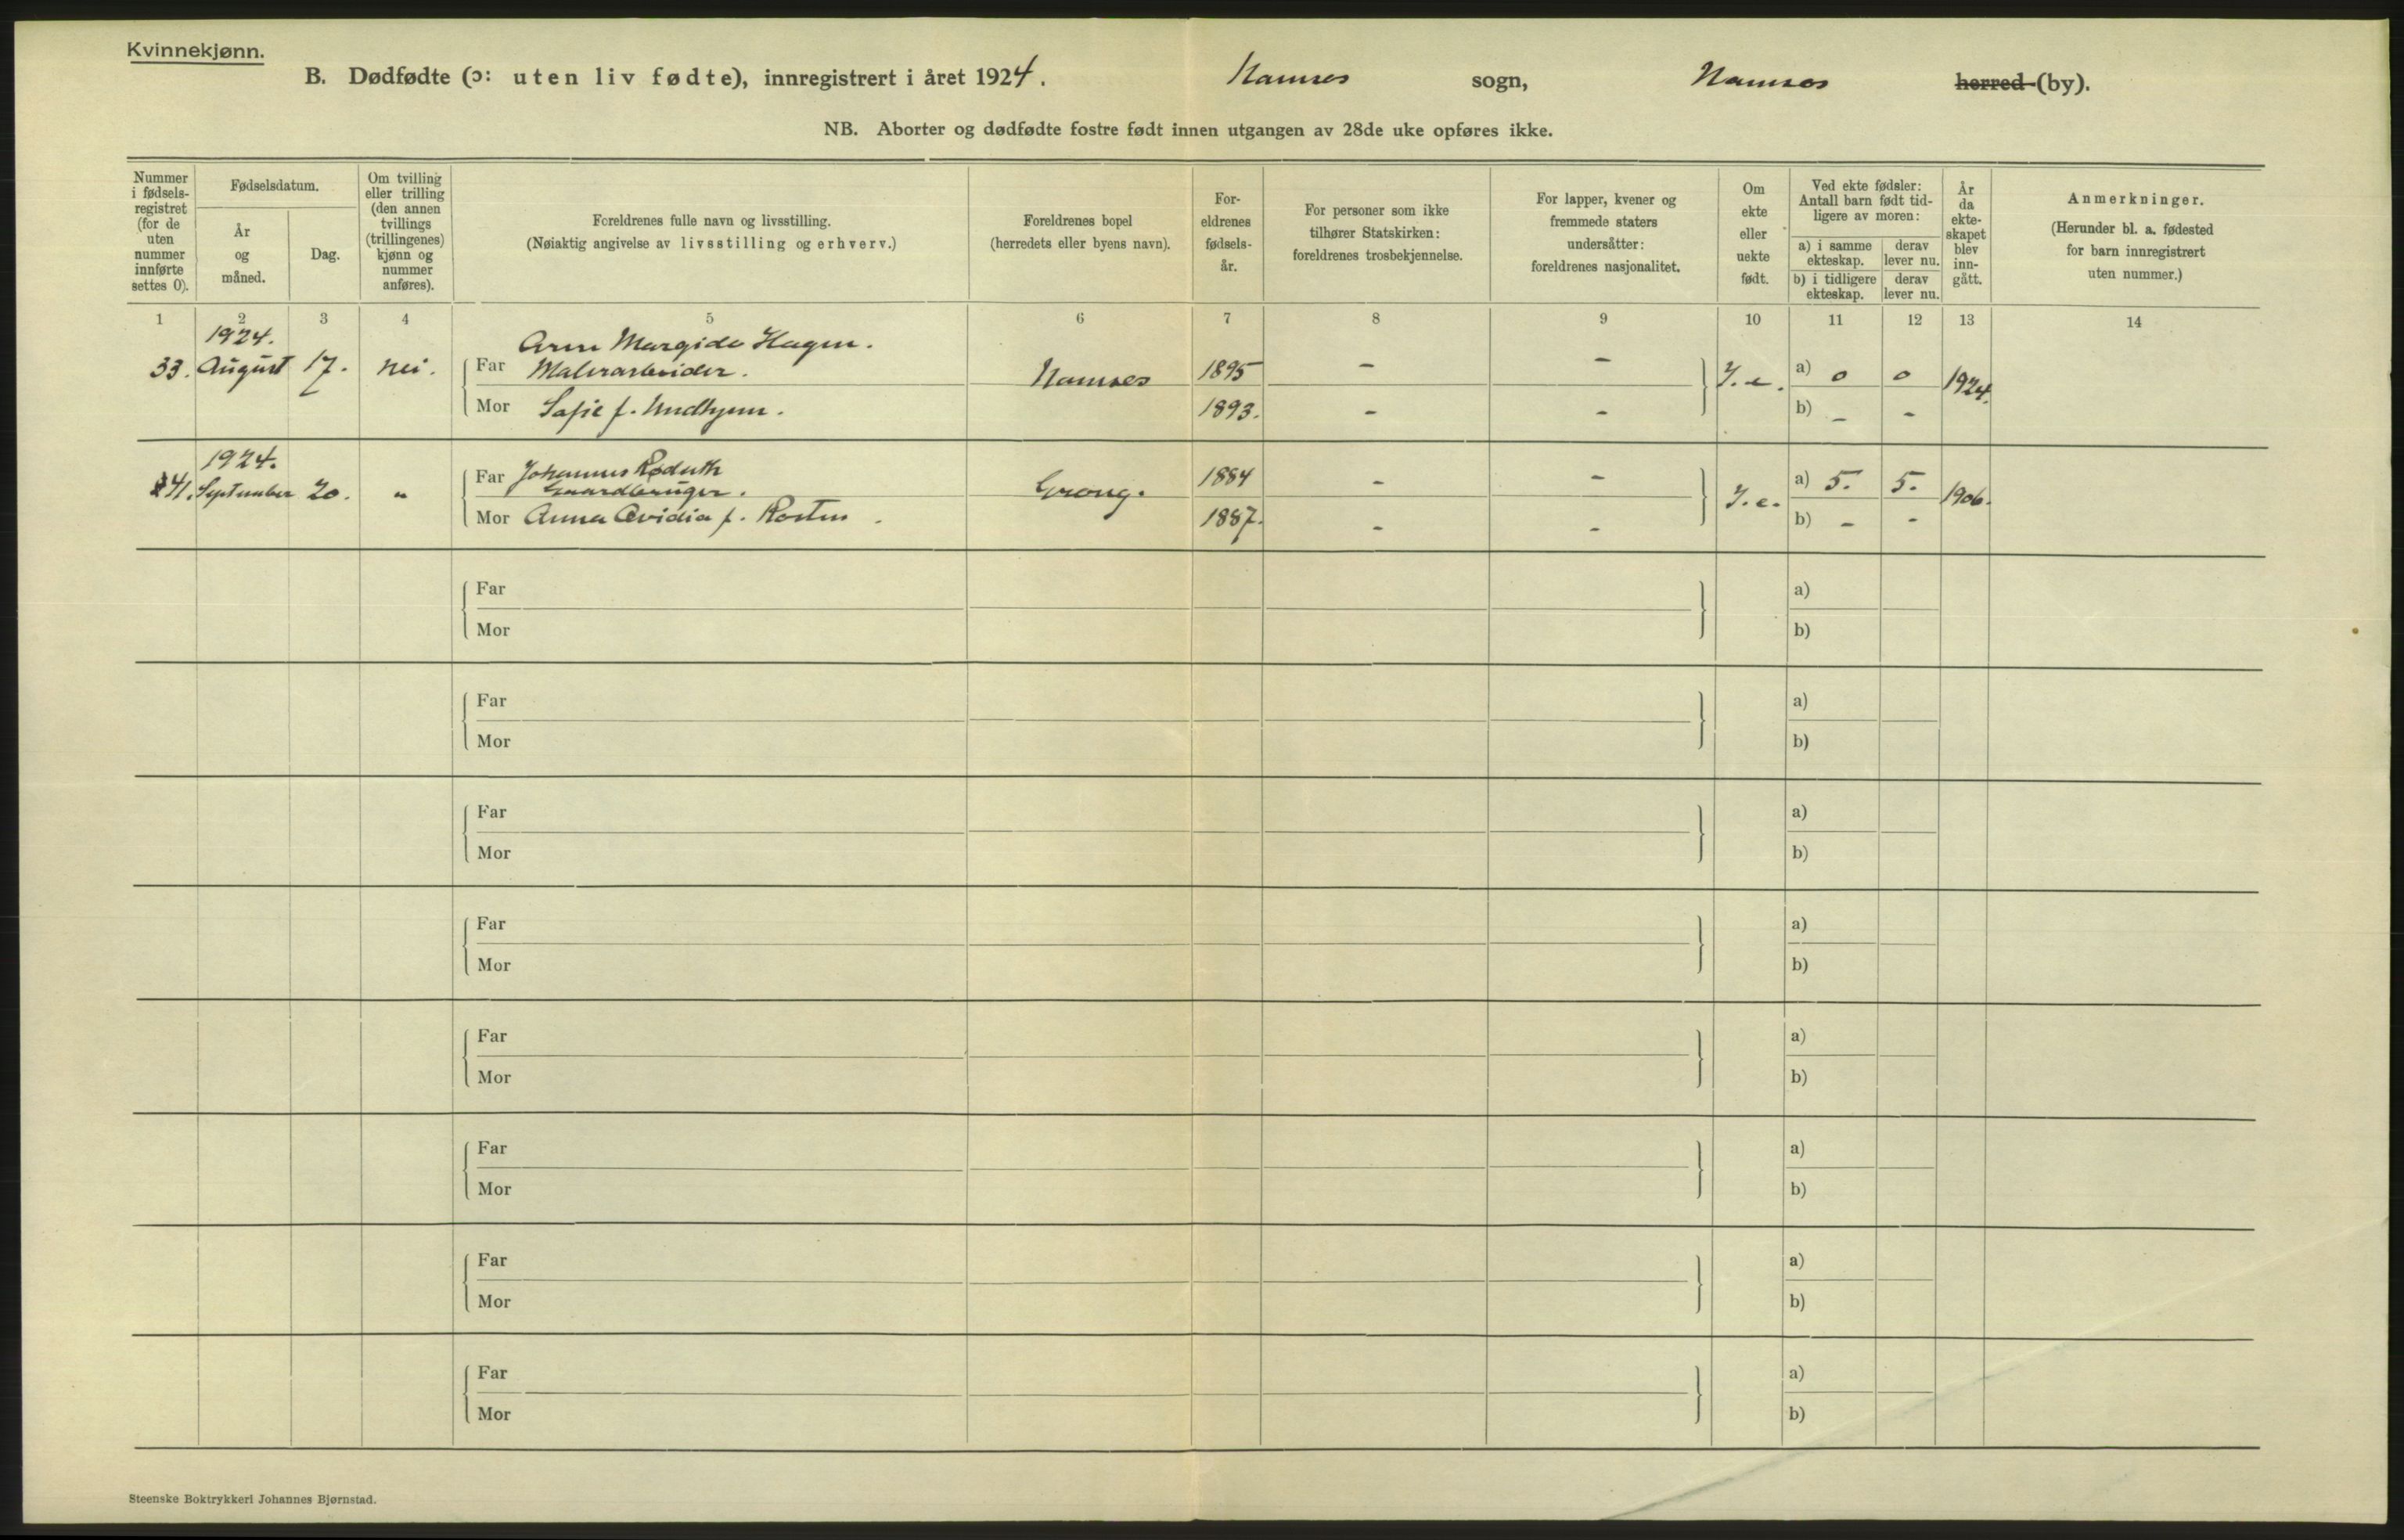 Kvinnekjønn.
B. Dødfødte (ɔ: uten liv fødte), innregistrert i året 1924. Namsos sogn, Namsos herred (by).
NB. Aborter og dødfødte fostre født innen utgangen av 28de uke opføres ikke.
Nummer
i fødsels-
registret
(for de
uten
nummer
innførte
settes 0).
Fødselsdatum.
År
og
måned.
Dag.
Om tvilling
eller trilling
(den annen
tvillings
(trillingenes)
kjønn og
nummer
anføres).
Foreldrenes fulle navn og livsstilling.
(Nøiaktig angivelse av livsstilling og erhverv.)
Foreldrenes bopel
(herredets eller byens navn).
For-
eldrenes
fødsels-
år.
For personer som ikke
tilhører Statskirken:
foreldrenes trosbekjennelse.
For lapper, kvener og
fremmede staters
undersåtter:
foreldrenes nasjonalitet.
Om
ekte
eller
uekte
født.
Ved ekte fødsler:
Antall barn født tid-
ligere av moren:
a) i samme
ekteskap.
derav
lever nu.
b) i tidligere
ekteskap.
derav
lever nu.
År
da
ekte-
skapet
blev
inn-
gått.
Anmerkninger.
(Herunder bl. a. fødested
for barn innregistrert
uten nummer.)
1 2 3 4 5 6 7 8 9 10 11 12 13 14
1924. Hagen.
33. August 17. nei. Far Malerarbeider. Namsos 1895 - - I. e. a) 0 0 1924.
Mor f. 1893. - - b) - -
1924. Johannes
41. September 20. " Far Gaardbruger. Grong. 1884 - - I. e. a) 5. 5. 1906.
Mor Anna Ovidia f. 1887. - - b) - -
Far a)
Mor b)
Far a)
Mor b)
Far a)
Mor b)
Far a)
Mor b)
Far a)
Mor b)
Far a)
Mor b)
Far a)
Mor b)
Far a)
Mor b)
Steenske Boktrykkeri Johannes Bjørnstad.